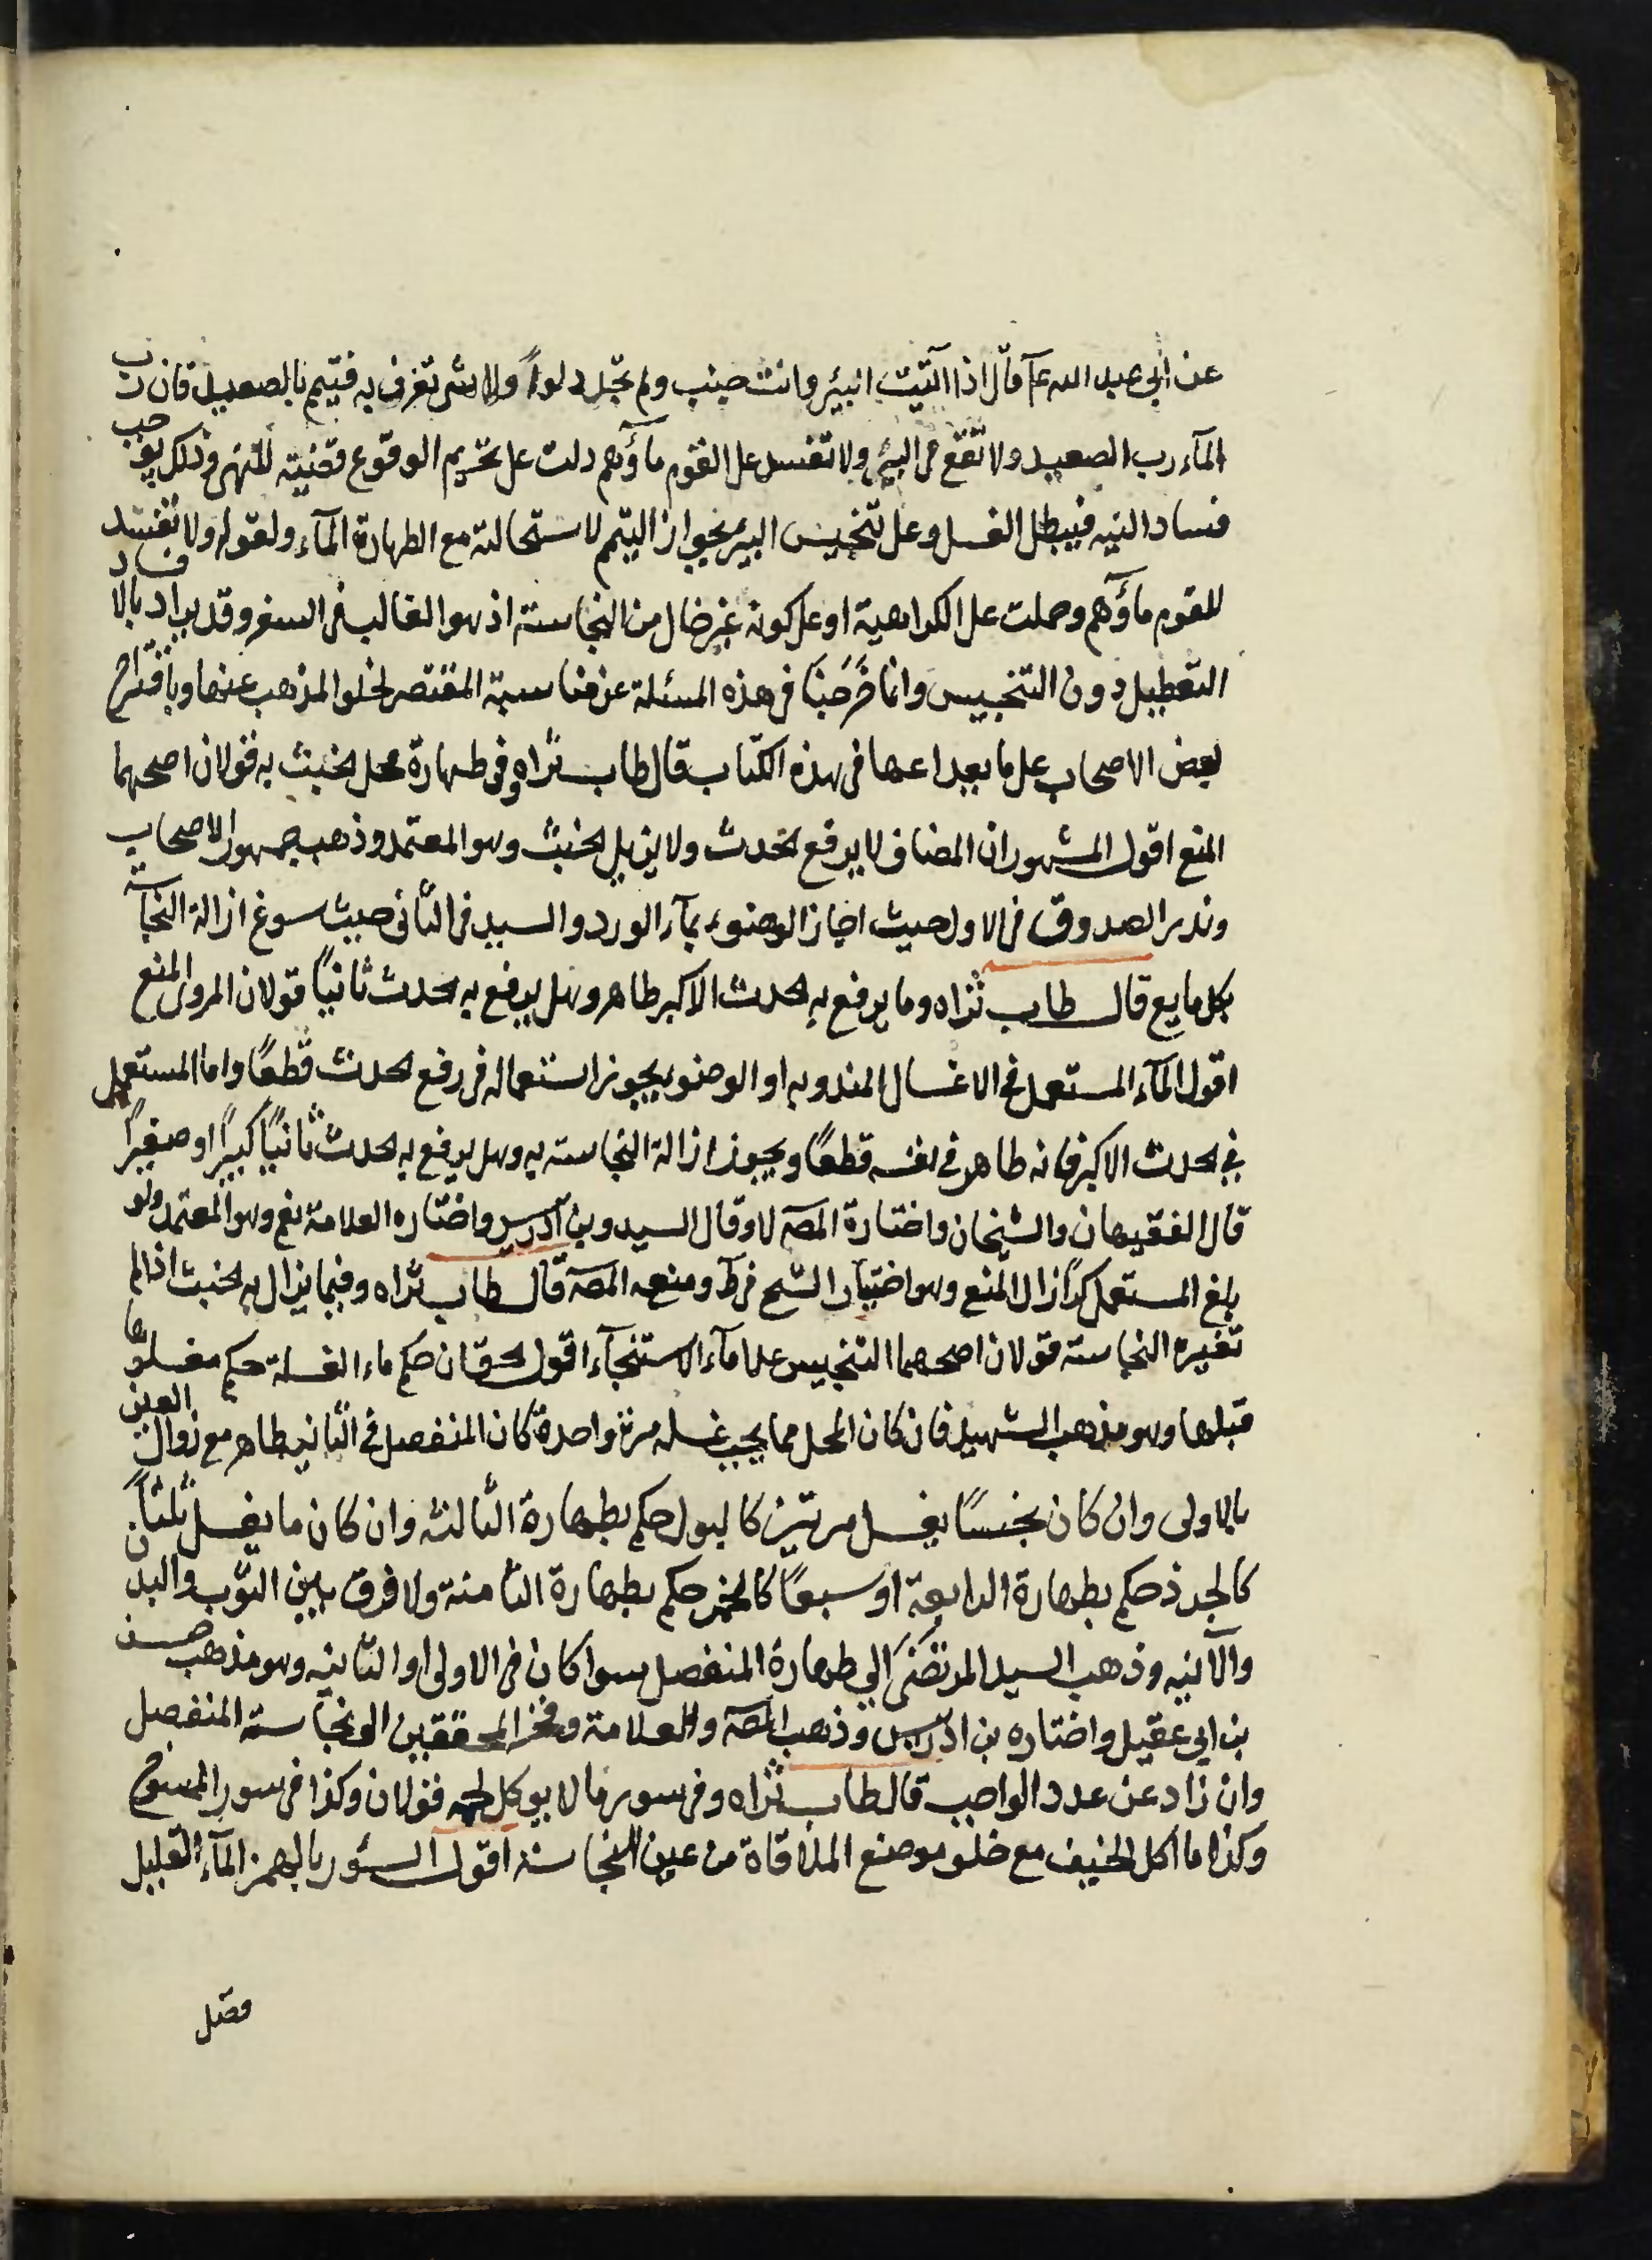 عن ابي عبد الله عآ قال اذا اتيت البئر وانت جنب ولم تجد دلوا ولا شى تغرف به فتيمم بالصعيد فان رب
المآء رب الصعيد ولا تقع في البئر ولا تفسد على القوم ماؤهم دلت على تحريم الوقوع قضية للنهى وذلك يوجب
فساد النيه فيبطل الغسل وعلى تنجيس البئر بجواز التيمم لاستحالته مع الطهارة المآء ولقوله ولا تفسد
للقوم ماؤهم وحملت على الكراهية او على كونه غير خال من النجاسته اذ هو الغالب في السفر وقد يراد بالافساد
التعطيل دون التنجيس وانما خرجنا في هذه المسئلة عن مناسبة المقتصر لخلو المذهب عنها وباقتراح
بعض الاصحاب على ما بعد اعها في هذه الكتاب قال طاب ثراه وفى طهارة محل الخبث به قولان اصحهما
المنع اقول المشهور ان المضاف لا يرفع الحدث ولا يزيل الخبث وهو المعتمد وذهب جمهور الاصحاب
وندر الصدوق في الاول حيث اجاز الوضوء بمآء الورد والسيد في الثانى حيث سوغ ازالة النجاسة
بكل مايع قال طاب ثراه وما يرفع به الحدث الاكبر طاهر وهل يرفع به الحدث ثانياً قولان المروى المنع
اقول المآء المستعمل في الاغسال المندوبه او الوضوء يجوز استعماله في رفع الحدث قطعًا واما المستعمل
في الحدث الاكبر فانه طاهر في نفسه قطعًا ويجوز ازالة النجاسته به وهل يرفع به الحدث ثانيًا كبيرًا او صغيرًا
قال الفقيهان والشيخان واختارة المصه لا وقال السيد وبن ادريس واختاره العلامة نعم وهو المعتمد ولو
بلغ المستعمل كرًا زال المنع وهو اختيار الشيخ في ط ومنعه المصه قال طاب ثراه وفيما يزال به الخبث اذا لم
تغيره النجاسته قولان اصحهما التنجيس عدا مآء الاستنجآء اقول الحق ان حكم ماء الغسلة حكم مغسلوتها
قبلها وهو مذهب الشهيد فان كان المحل مما يجب غسله مرة واحدة كان المنفصل في الثانيه طاهر مع زوال العين
بالاولى وان كان نجسًا يغسل مرتين كالبول حكم بطهارة الثالثه وان كان ما يغسل ثلثاً
كالجرذ حكم بطهارة الرابعة او سبعًا كالخمر حكم بطهارة الثامنة ولا فرق بين الثوب والبدن
والآنيه وذهب السيد المرتضى الى طهارة المنفصل سوا كان في الاولى او الثانيه وهو مذهب حسن
بن ابي عقيل واختاره بن ادريس وذهب المصه والعلامة وفخر المحققين الى نجاسته المنفصل
وان زاد عن عدد الواجب قال طاب ثراه وفي سور ما لا يوكل لحمه قولان وكذا في سور المسوخ
وكذا ما اكل الجيف مع خلو موضع الملاقاة من عين النجاسته اقول السئور بالهمز المآء القليل